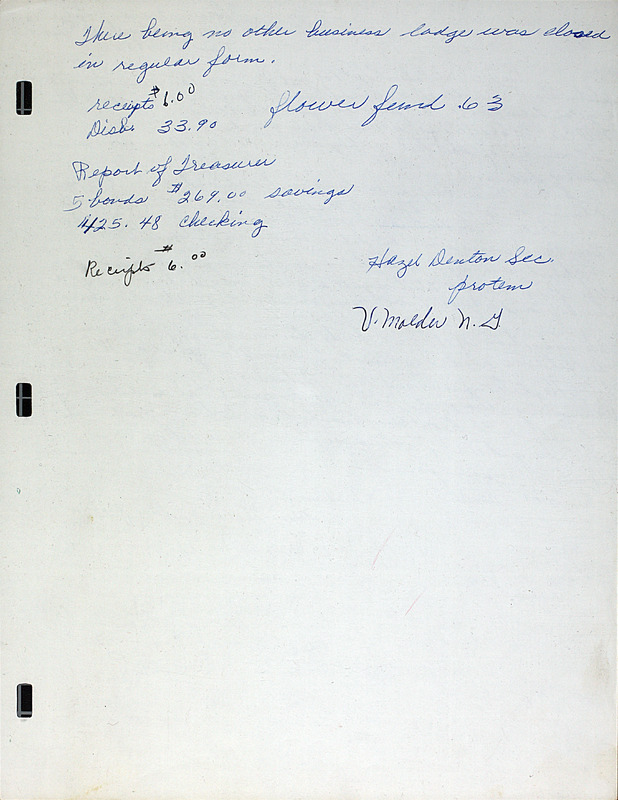 There being no other business lodge was closed
in regular form.
receipts $6.00 flower fund .63
Disb. 33.90
Report of Treasurer
5 bonds $269.00 savings
425.48 checking
Receipts $6.00
Hazel Denton Sec.
protem
V. Molder N. G.